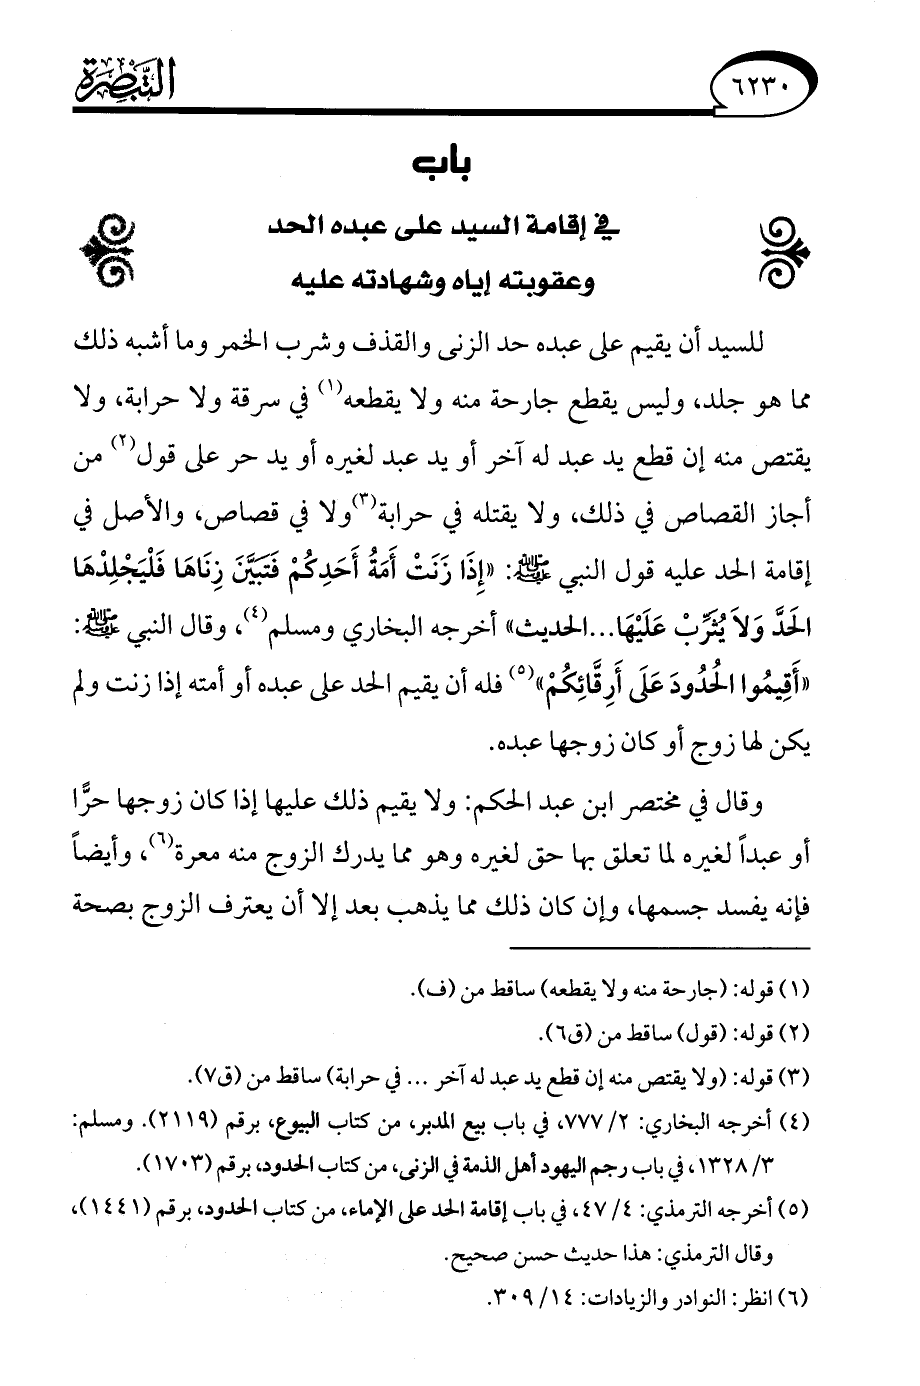 ٦٢٣٠
التبصرة
باب
في إقامة السيد على عبده الحد
وعقوبته إياه وشهادته عليه
للسيد أن يقيم على عبده حد الزنى والقذف وشرب الخمر وما أشبه ذلك
مما هو جلد، وليس يقطع جارحة منه ولا يقطعه(١) في سرقة ولا حرابة، ولا
يقتص منه إن قطع يد عبد له آخر أو يد عبد لغيره أو يد حر على قول(٢) من
أجاز القصاص في ذلك، ولا يقتله في حرابة(٣)ولا في قصاص، والأصل في
إقامة الحد عليه قول النبي ﷺ: «إِذَا زَنَتْ أَمَةُ أَحَدِكُمْ فَتَبَيَّنَ زِنَاهَا فَلْيَجْلِدْهَا
الحَدَّ وَلاَ يُثَرِّبْ عَلَيْهَا...الحديث» أخرجه البخاري ومسلم(٤)، وقال النبي ﷺ:
«أَقِيمُوا الحُدُودَ عَلَى أَرِقَّائِكُمْ»(٥) فله أن يقيم الحد على عبده أو أمته إذا زنت ولم
يكن لها زوج أو كان زوجها عبده.
وقال في مختصر ابن عبد الحكم: ولا يقيم ذلك عليها إذا كان زوجها حرًّا
أو عبداً لغيره لما تعلق بها حق لغيره وهو مما يدرك الزوج منه معرة(٦)، وأيضاً
فإنه يفسد جسمها، وإن كان ذلك مما يذهب بعد إلا أن يعترف الزوج بصحة
(١) قوله: (جارحة منه ولا يقطعه) ساقط من (ف).
(٢) قوله: (قول) ساقط من (ق٦).
(٣) قوله: (ولا يقتص منه إن قطع يد عبد له آخر ... في حرابة) ساقط من (ق٧).
(٤) أخرجه البخاري: ٢/ ٧٧٧، في باب بيع المدبر، من كتاب البيوع، برقم (٢١١٩). ومسلم:
٣/ ١٣٢٨، في باب رجم اليهود أهل الذمة في الزنى، من كتاب الحدود، برقم (١٧٠٣).
(٥) أخرجه الترمذي: ٤/ ٤٧، في باب إقامة الحد على الإماء، من كتاب الحدود، برقم (١٤٤١)،
وقال الترمذي: هذا حديث حسن صحيح.
(٦) انظر: النوادر والزيادات: ١٤/ ٣٠٩.